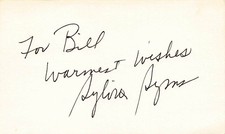 For Bill
Warmest Wishes
Sylvia Syms